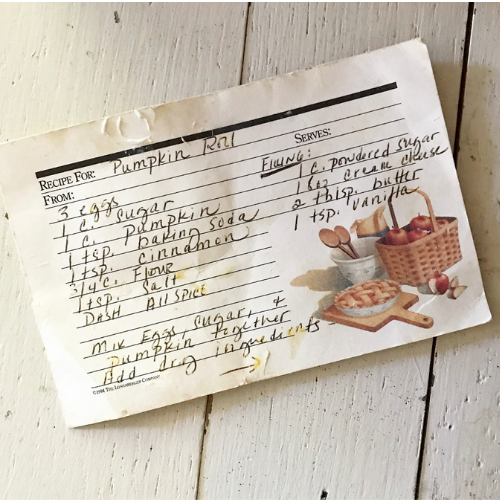 RECIPE FOR: Pumpkin Roll
SERVES:
FROM:
3 eggs
1 c. sugar
1 c. pumpkin
1 tsp. baking soda
1 tsp. cinnamon
3/4 c. Flour
1 tsp. Salt
DASH Allspice
Mix Eggs, Sugar, &
Pumpkin together
Add dry ingredients
→
FILLING:
1 c. powdered sugar
8 oz cream cheese
2 tblsp. butter
1 tsp. vanilla
©1998 THE LONGABERGER COMPANY